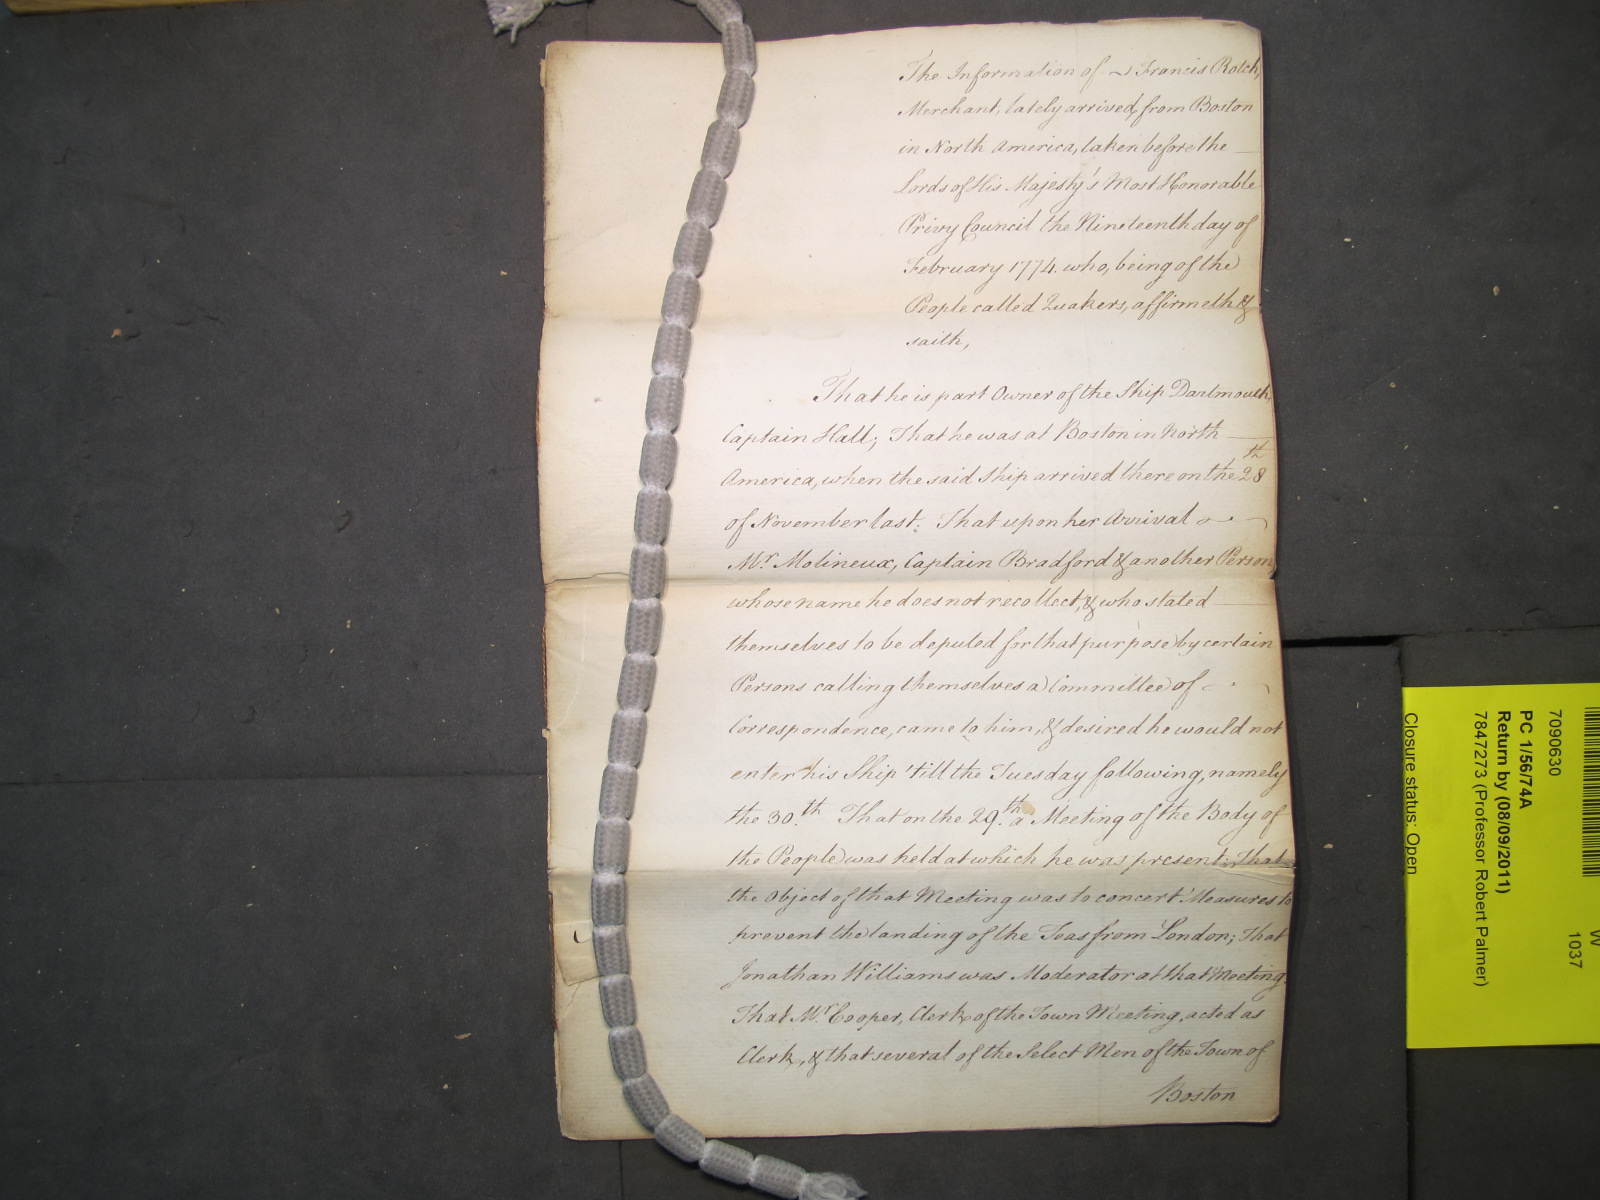 The Information of Francis Rotch,
Merchant, lately arrived, from Boston
in North America, taken before the
Lords of His Majesty's Most Honorable
Privy Council the Nineteenth day of
February 1774. who, being of the
People called Quakers, affirmeth &
saith,
That he is part Owner of the Ship Dartmouth,
Captain Hall; That he was at Boston in North
America, when the said Ship arrived there on the 28th
of November last: That upon her Arrival
Mr. Molineux, Captain Bradford & another Person
whose name he does not recollect, & who stated
themselves to be deputed for that purpose by certain
Persons calling themselves a Committee of
Correspondence, came to him, & desired he would not
enter his Ship 'till the Tuesday following, namely
the 30th. That on the 29th. a Meeting of the Body of
the People was held at which he was present: That
the Object of that Meeting was to concert Measures to
prevent the landing of the Teas from London; That
Jonathan Williams was Moderator at that Meeting,
That Mr. Cooper, Clerk of the Town Meeting, acted as
Clerk, & that several of the Select Men of the Town of
Boston
W
1037
7090630
PC 1/56/74A
Return by (08/09/2011)
7847273 (Professor Robert Palmer)
Closure status: Open